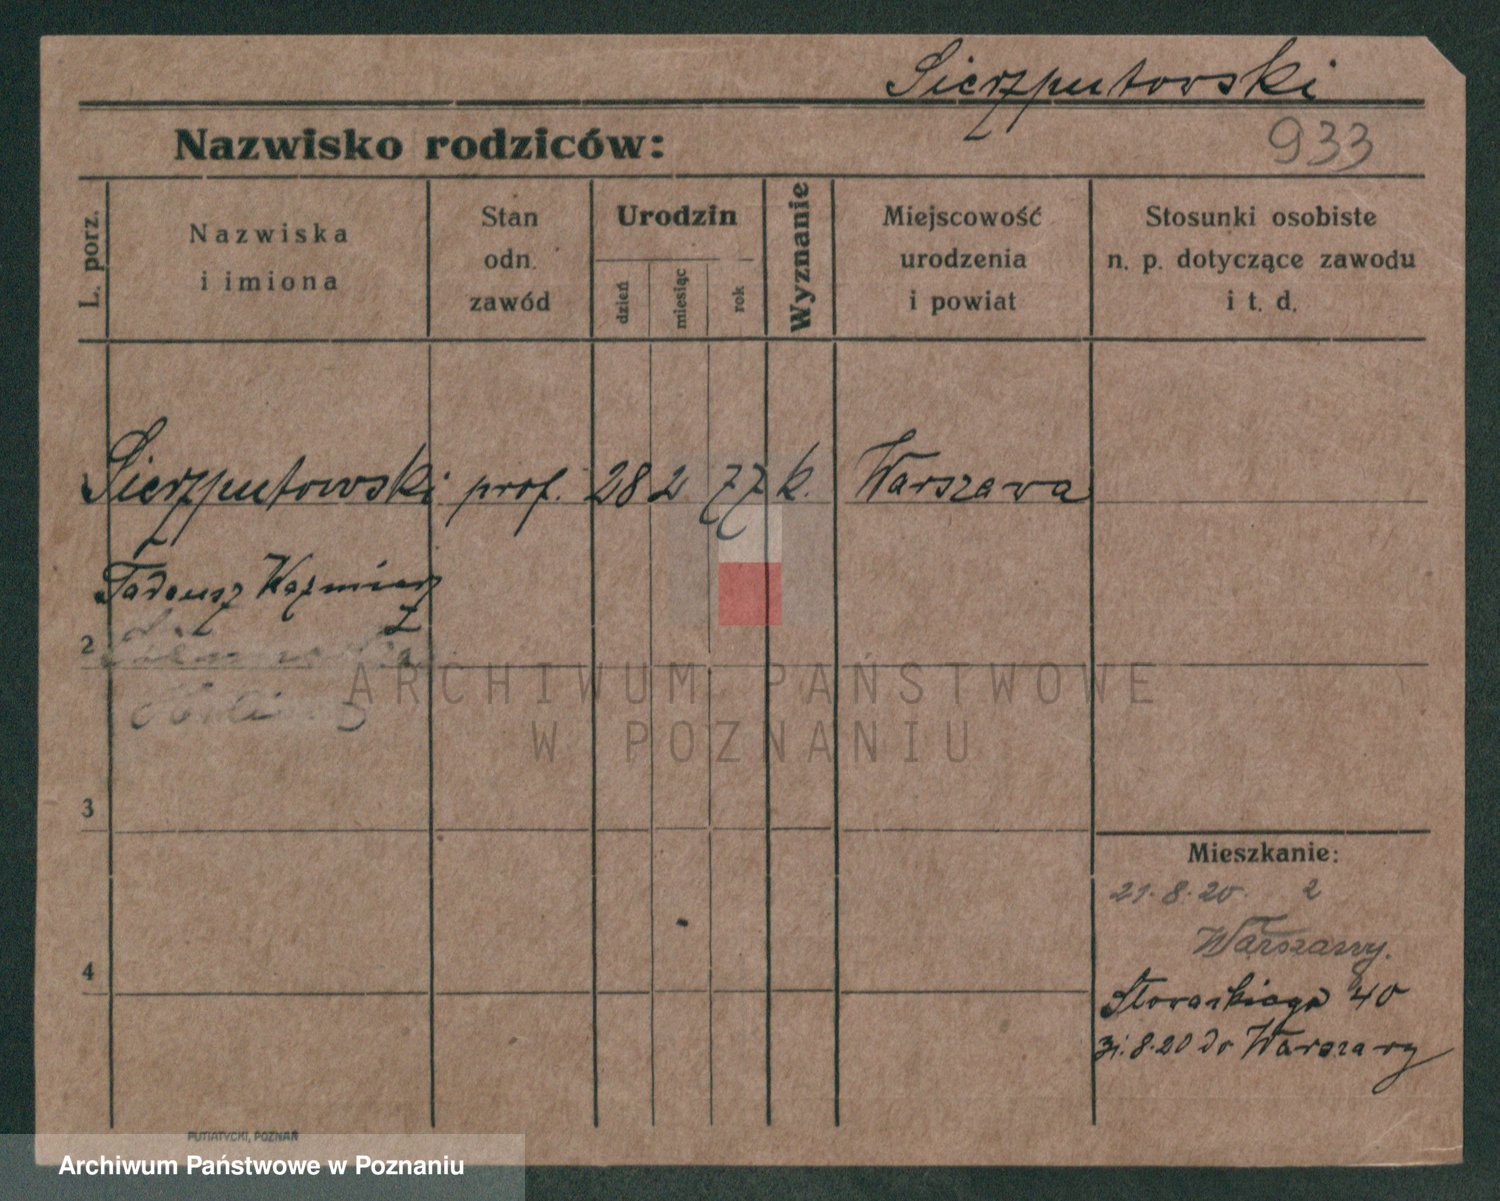 Sierzputovski
Nazwisko rodziców:
933
L. porz.
Nazwiska
i imiona
Stan
odn.
zawód
Urodzin
dzień
miesiąc
rok
Wyznanie
Miejscowość
urodzenia
i powiat
Stosunki osobiste
n. p. dotyczące zawodu
i t. d.
1 Sierzputowski prof. 28 2 77 k. Warszawa
Tadeusz Kazmierz
2
3
4
Mieszkanie:
21.8.20. z
Warszawy.
Słowackiego 40
31.8.20 do Warszawy
ARCHIWUM PAŃSTWOWE
W POZNANIU
PUTIATYCKI, POZNAŃ
Archiwum Państwowe w Poznaniu